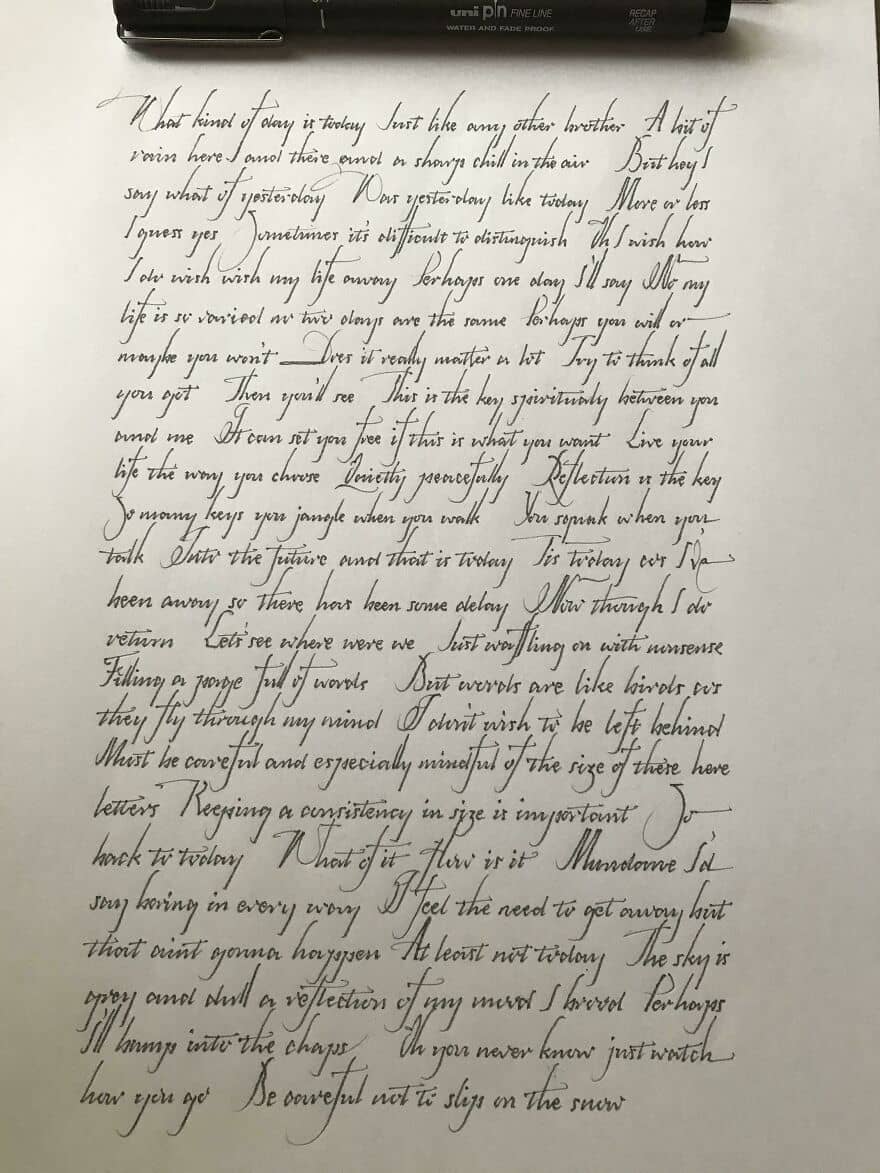 uni pin FINE LINE
WATER AND FADE PROOF
RECAP
AFTER
USE
What kind of day is today Just like any other brother A bit of
rain here I and there and a sharp chill in the air But hey I
say what of yesterday Was yesterday like today More or less
I guess yes Sometimes it's difficult to distinguish Oh I wish how
I do wish wish my life away Perhaps one day I'll say Wo my
life is so varied no two days are the same Perhaps you will or
maybe you won't Does it really matter a lot Try to think of all
you got Then you'll see This is the key spiritualy between you
and me It can set you free if this is what you want Live your
life the way you choose Quietly peacefully Reflection is the key
So many keys you jangle when you walk You squak when you
talk Into the future and that is today Tis today cos I've
been away so there has been some delay Now though I do
return Let's see where were we Just waffling on with nonsense
Filling a page full of words But words are like birds cos
they fly through my mind I don't wish to be left behind
Must be careful and especially mindful of the size of these here
letters Keeping a consistency in size is important So
back to today What of it How is it Mundane I'd
say boring in every way I feel the need to get away but
that aint gonna happen At least not today The sky is
grey and dull a reflection of my mood I brood Perhaps
I'll bump into the chaps Oh you never know just watch
how you go Be careful not to slip on the snow